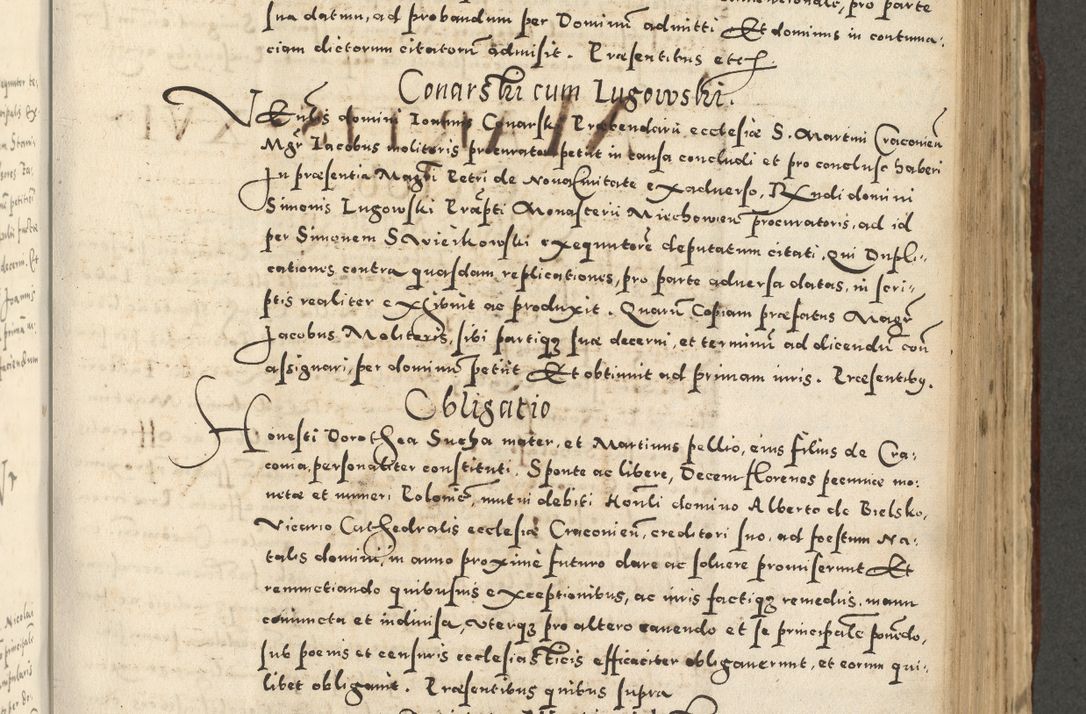 sua datum, ad probandum per Dominum admitti Et dominus in contuma-
ciam dictorum citatorum admisit. Præsentibus etc.
Conarski cum Lugowski.
Venlis domini Joannis Conarski Præbendarii ecclesiæ S. Martini Cracovien
Mgr Jacobus molitoris procurator petiit in causa concludi et pro concluso haberi
In præsentia Magri Petri de Nova Civitate ex adverso, Rndi domini
Simonis Lugowski Præpti Monasterii Miechovien procuratoris, ad id
per Simonem exequutorē deputatum citati, qui Dupli-
cationes contra quasdam replicationes, pro parte adversa datas, in scri-
ptis realiter exhibuit ac produxit. Quarū Copiam præfatus Magr
Jacobus Molitoris, sibi partiq3 suæ decerni, et terminū ad dicendū con
assignari, per dominū petiit Et obtinuit ad primam iuris. Præsentibq.
Obligatio
Honesti Dorothea Sucha mater, et Martinus pellio, eius filius de Cra-
covia, personaliter constituti. Sponte ac libere, Decem florenos pecuniæ mo-
netæ et numeri Polonicæ, mutui debiti Honli domino Alberto de Bielsko,
Vicario Cathedralis ecclesiæ Cracovien, creditori suo, ad foestum Na-
talis domini, in anno proxime futuro dare ac solvere promiserunt Et
renunctiando quibusvis exceptionibus, ac iuris factiq3 remediis, manu
coniuncta et indivisa, uterq3 pro altero cavendo et se principale ponēdo,
sub poenis et censuris ecclesiasticis efficaciter obligaverunt, et eorum qui-
libet obligavit. Præsentibus quibus supra